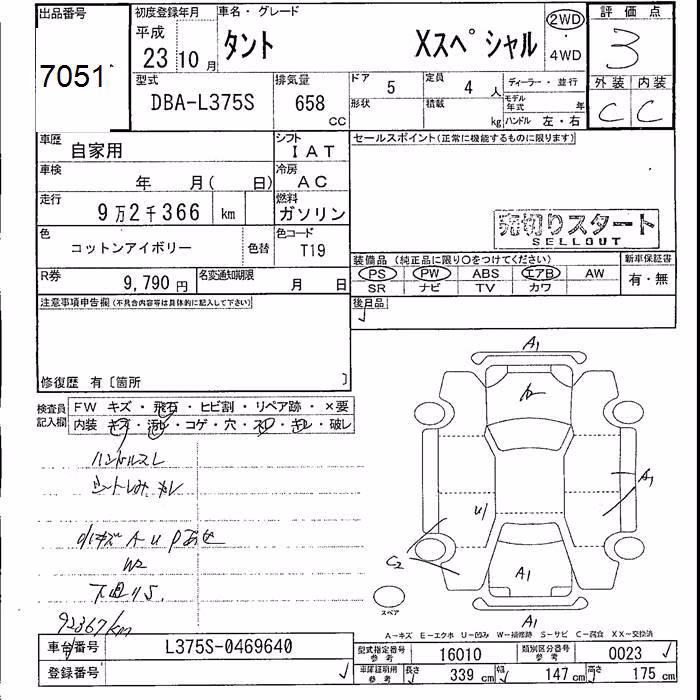 出品番号
7051
初度登録年月
平成
23 10 月
車名・グレード
タント Xスペシャル
2WD
・
4WD
評価点
3
外装 内装
C C
型式
DBA-L375S
排気量
658
CC
ドア 5
定員 4 人
ディーラー・並行
形状
積載 kg
モデル年式 年
ハンドル 左・右
車歴
自家用
シフト
IAT
セールスポイント(正常に機能するものに限ります)
車検
年 月( 日)
冷房
AC
走行
9万2千366 km
燃料
ガソリン
売切りスタート
SELLOUT
色
コットンアイボリー
色替
色コード
T19
装備品 (純正品に限り○をつけてください)
新車保証書
PS PW ABS エアB AW
有・無
SR ナビ TV カワ
R券
9,790 円
名変通知期限
月 日
後日品
注意事項申告欄(不具合内容等は具体的に記入して下さい)
修復歴 有〔箇所 〕
検査員
記入欄
FW キズ・飛石・ヒビ割・リペア跡・×要
内装 キズ・汚れ・コゲ・穴・スレ・キレ・破レ
ハンドルスレ
シートしみ
小キズ A U P
W2
92367km
A1
A1
U1
C2
A1
A1
スペア
A-キズ E-エクボ U-凹み W-補修跡 S-サビ C-腐食 XX-交換済
車台番号
L375S-0469640
登録番号
型式指定番号
参考
16010
類別区分番号
参考
0023
車庫証明用
参考
長さ 339 cm
幅 147 cm
高さ 175 cm